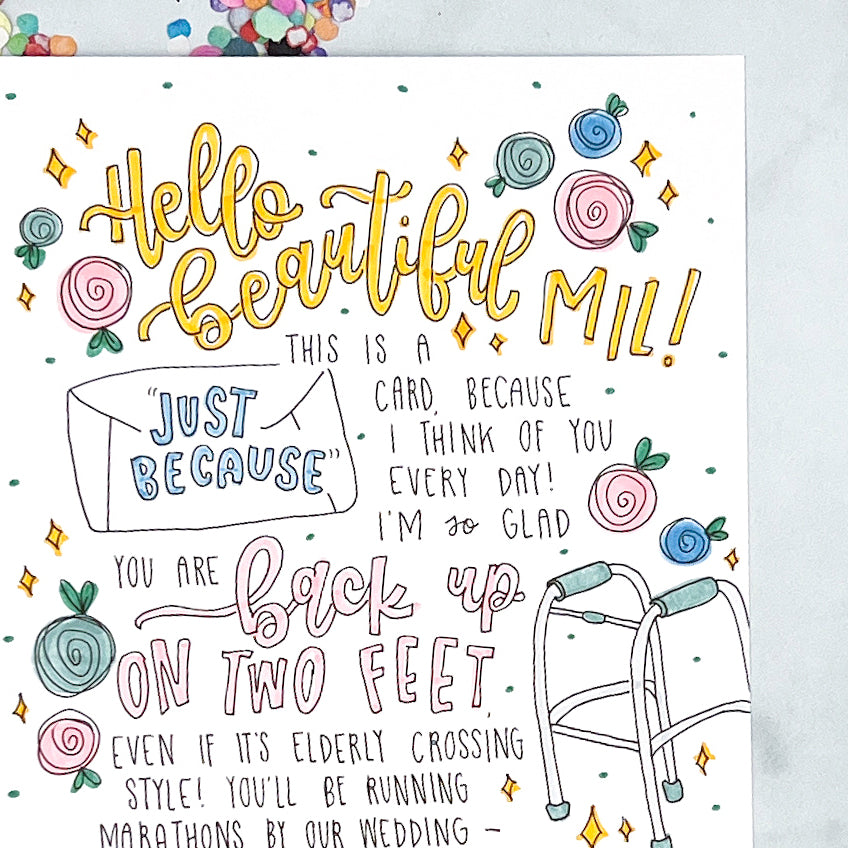 Hello
beautiful MIL!
THIS IS A
"JUST BECAUSE"
CARD, BECAUSE
I THINK OF YOU
EVERY DAY!
I'M so GLAD
YOU ARE back up
ON TWO FEET,
EVEN IF IT'S ELDERLY CROSSING
STYLE! YOU'LL BE RUNNING
MARATHONS BY OUR WEDDING –